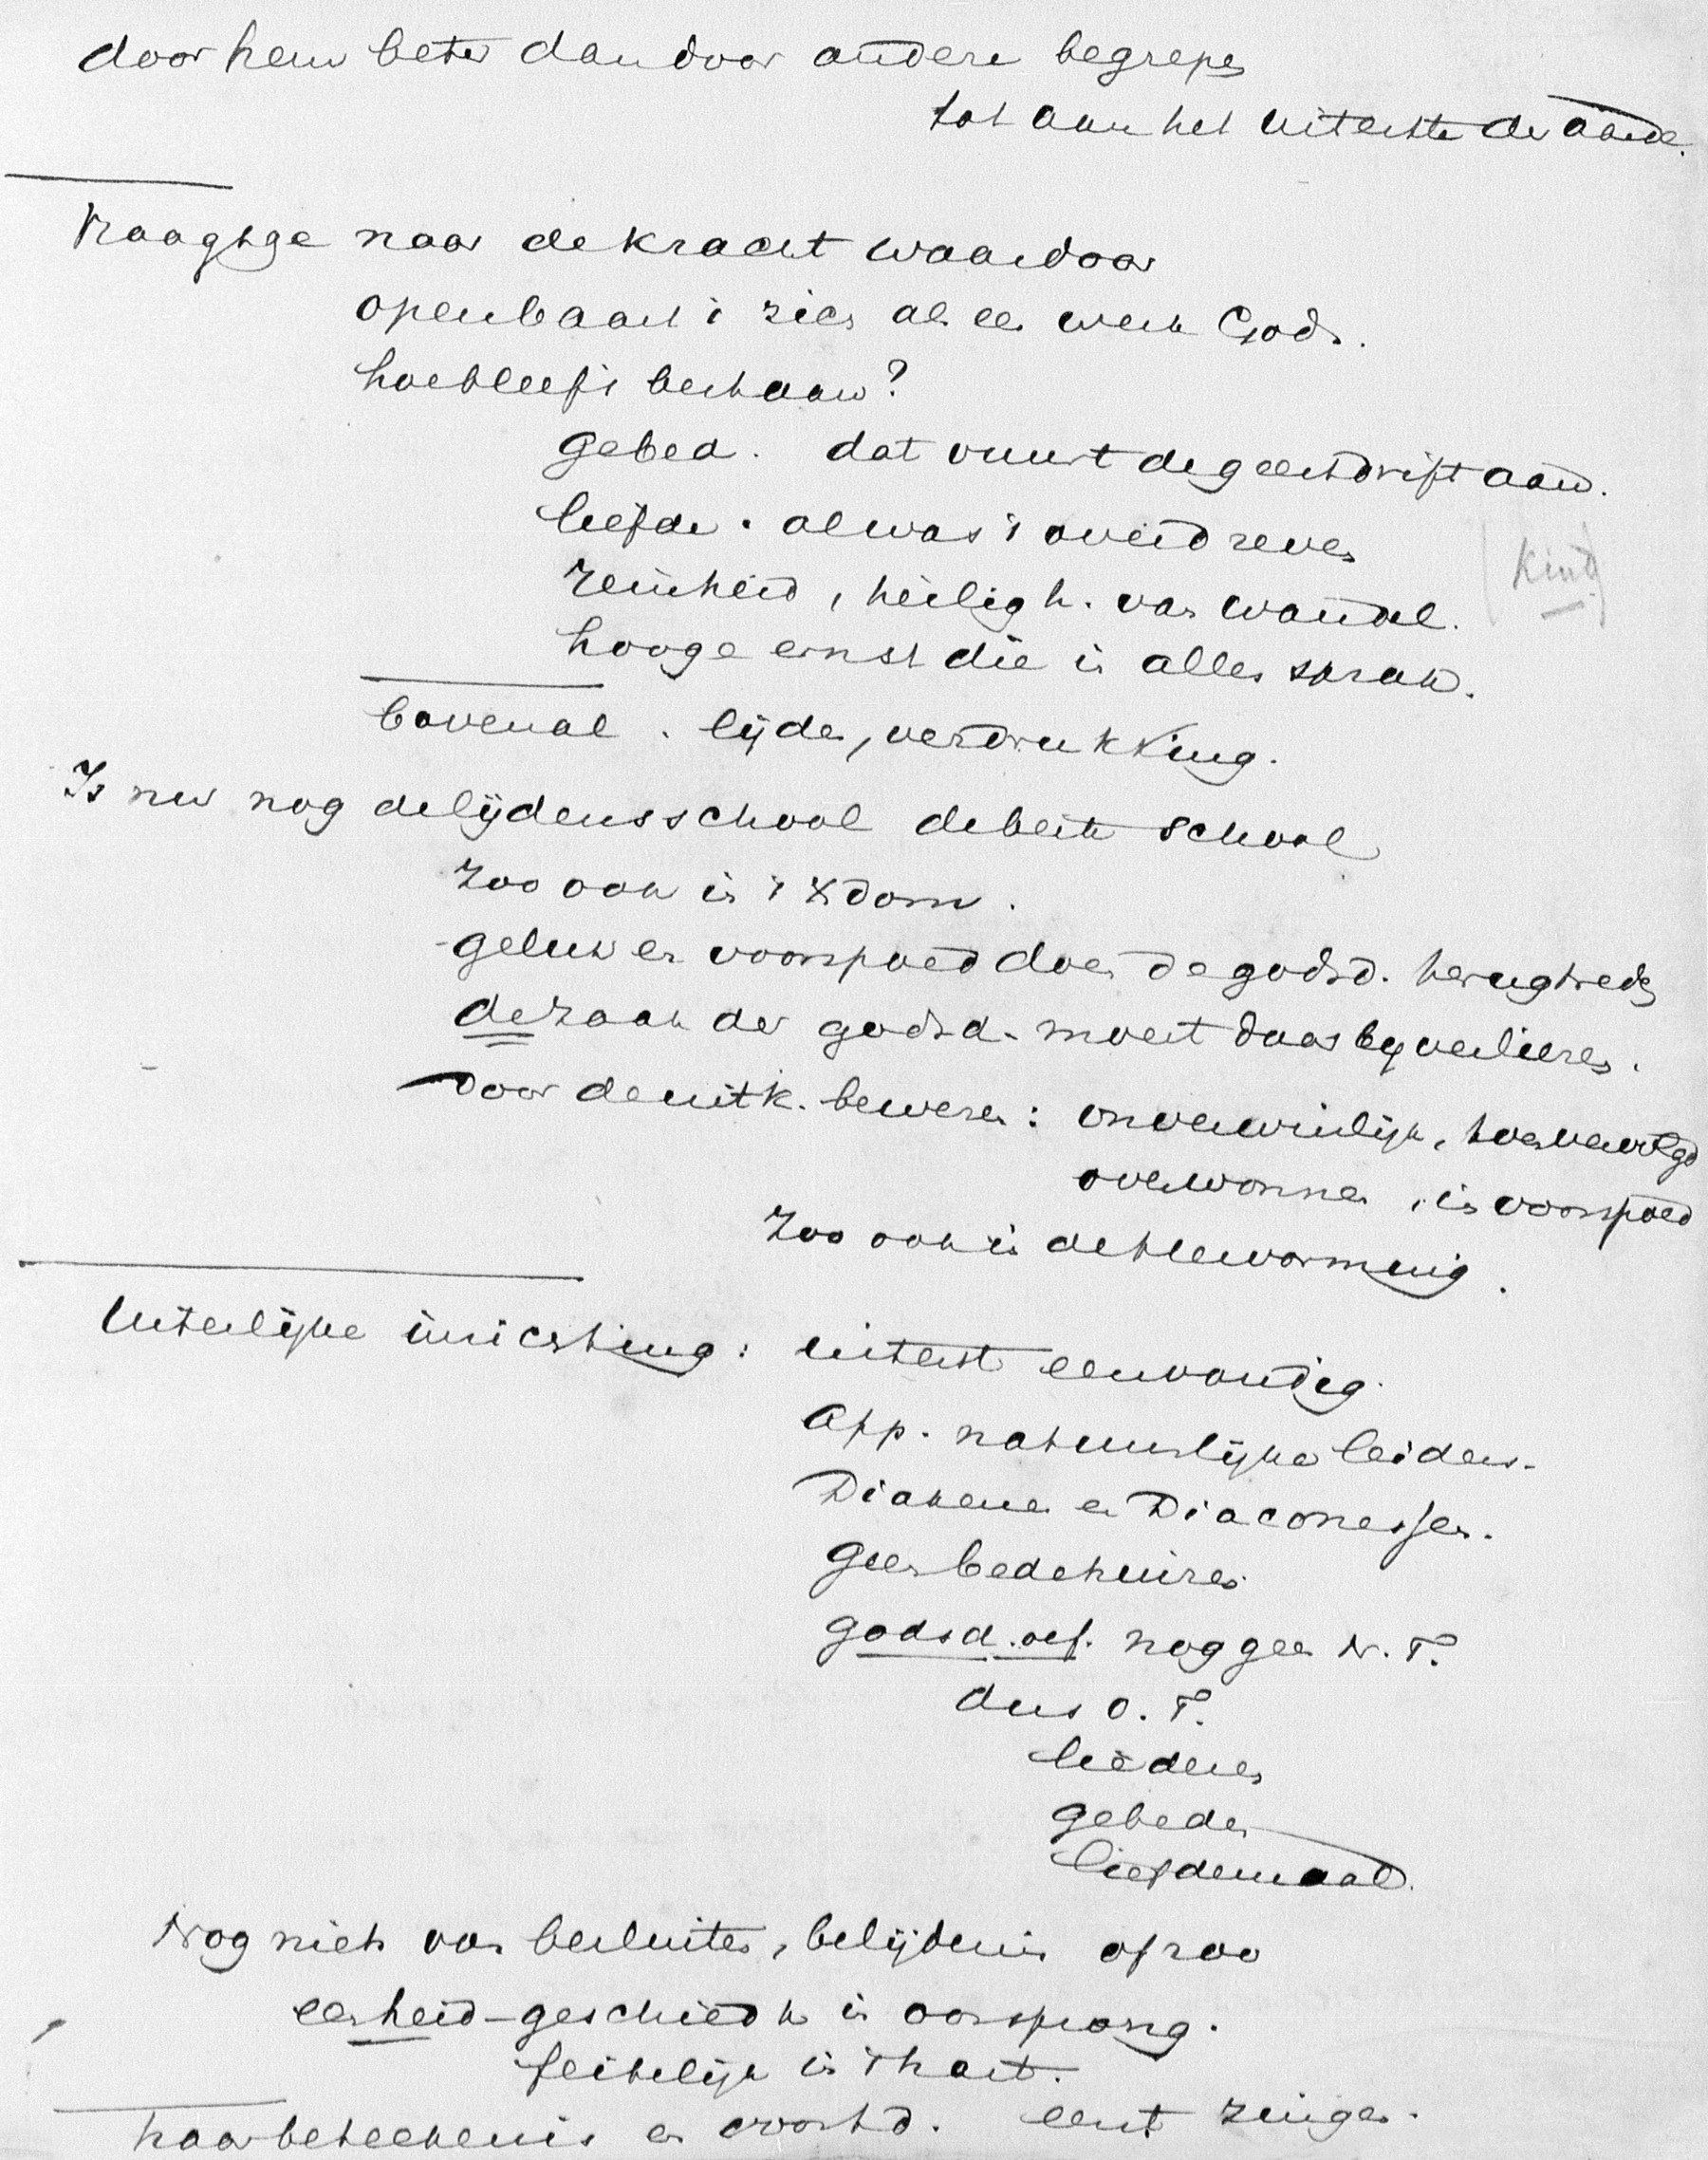 door hem beter dan door andere begrepen
tot aan het uiterste der aarde.
Vraagt ge naar de kracht waardoor
openbaart 't zich als een werk Gods.
hoe bleef 't bestaan?
gebed. dat vuurt de geestdrift aan.
liefde. al was 't overdreven
reinheid, heiligh. van wandel.
(King)
hooge ernst die in alles sprak.
bovenal. lijden, verdrukking.
Is nu nog de lijdensschool de beste school
Zoo ook in 't Xdom.
geluk en voorspoed doen de godsd. terugtreden
de zaak der godsd. moest daarbij verliezen.
Door de uitk. bewezen: onverwinlijk, toen vervolgd
overwonnen, in voorspoed
Zoo ook in de hervorming.
Uiterlijke inrichting: uiterst eenvoudig.
App. natuurlijke leiders.
Diakenen en Diaconessen.
Geen bedehuizen.
godsd. oef. nog geen N.T.
dus O.T.
liederen
gebeden
liefdemaal.
Nog niets van besluiten, belijdenis of zoo
eenheid-geschiedk in oorsprong.
feitelijk in 't hart.
haar beteekenis en eerst zingen.